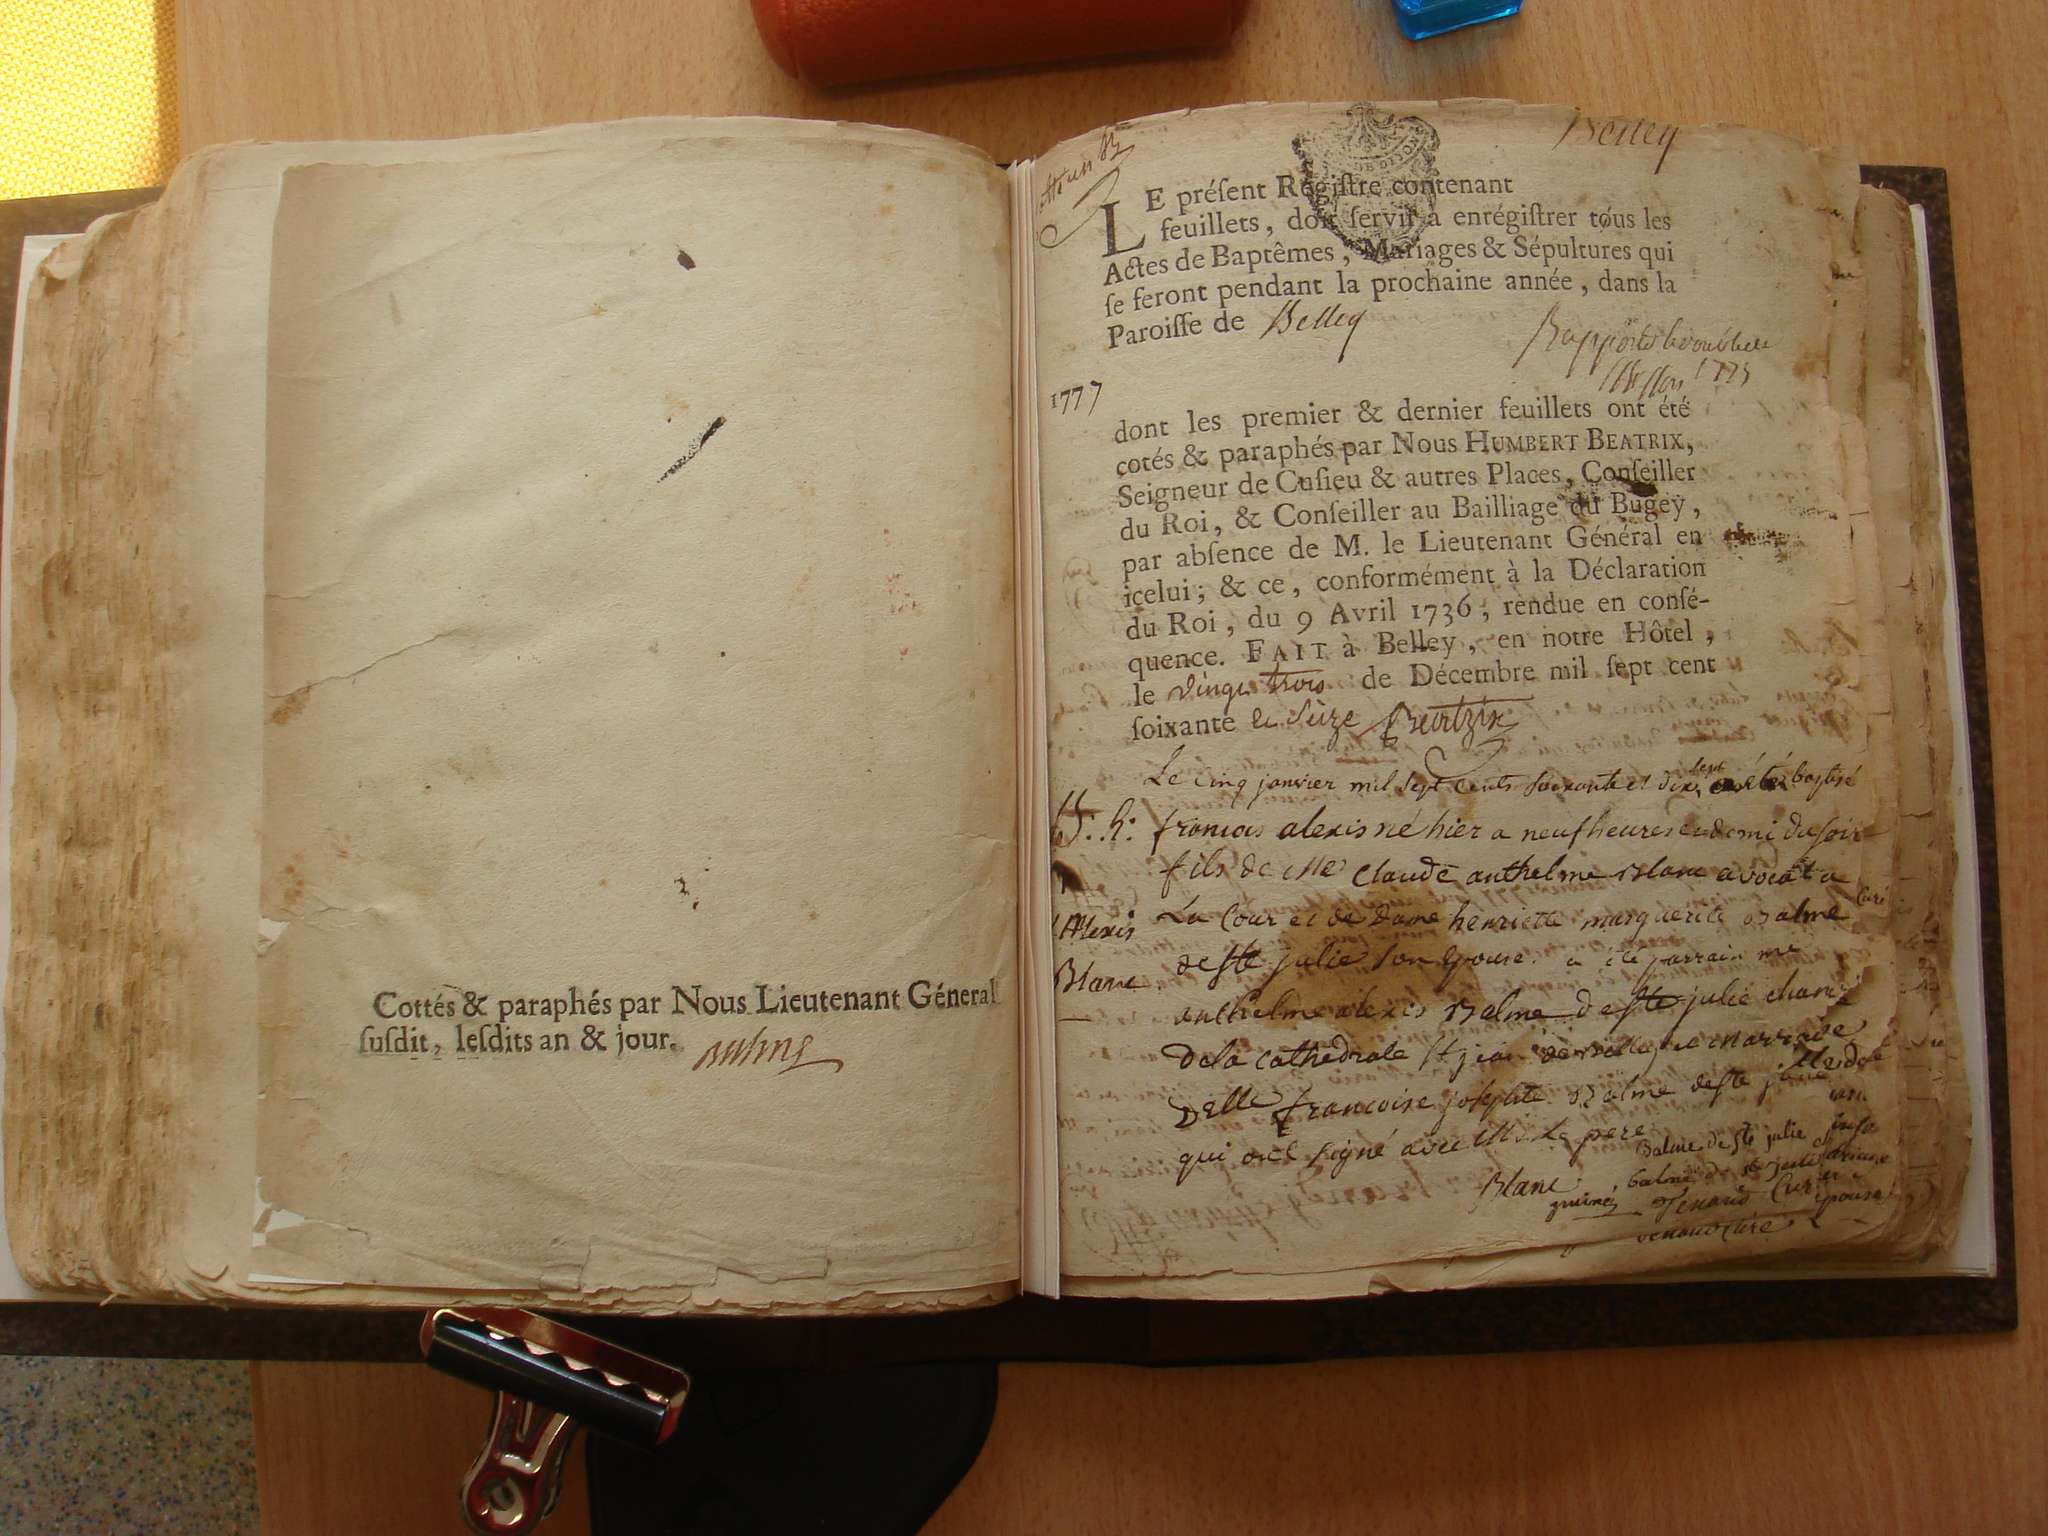 Cottés & paraphés par Nous Lieutenant Géneral
susdit, lesdits an & jour.
Belley
LE préſent Regiſtre contenant
feuillets, doit ſervir a enrégiſtrer tous les
Actes de Baptêmes, Mariages & Sépultures qui
ſe feront pendant la prochaine année, dans la
Paroiſſe de Belley
1777
dont les premier & dernier feuillets ont été
cotés & paraphés par Nous HUMBERT BEATRIX,
Seigneur de Cuſieu & autres Places, Conſeiller
du Roi, & Conſeiller au Bailliage du Bugey,
par abſence de M. le Lieutenant Général en
icelui; & ce, conformément à la Déclaration
du Roi, du 9 Avril 1736, rendue en conſé-
quence. FAIT à Belley, en notre Hôtel,
le vingt trois de Décembre mil ſept cent
ſoixante et seize Beatrix
Le cinq janvier mil sept cents soixante et dix sept a été baptisé
francois alexis né hier a neuf heures et demi du soir
fils de Me claude anthelme Blanc avocat a
La Cour et de dame henriette marguerite Balme
de ste julie son epouse. a été parrain mr
anthelme alexis Balme de ste julie chan
de la cathedrale st jean de Belley et marraine
Delle francoise josephte Balme de ste julie
qui ont signé avec le pere
Alexis
Blanc
Balme de ste julie
Blanc balme de ste julie